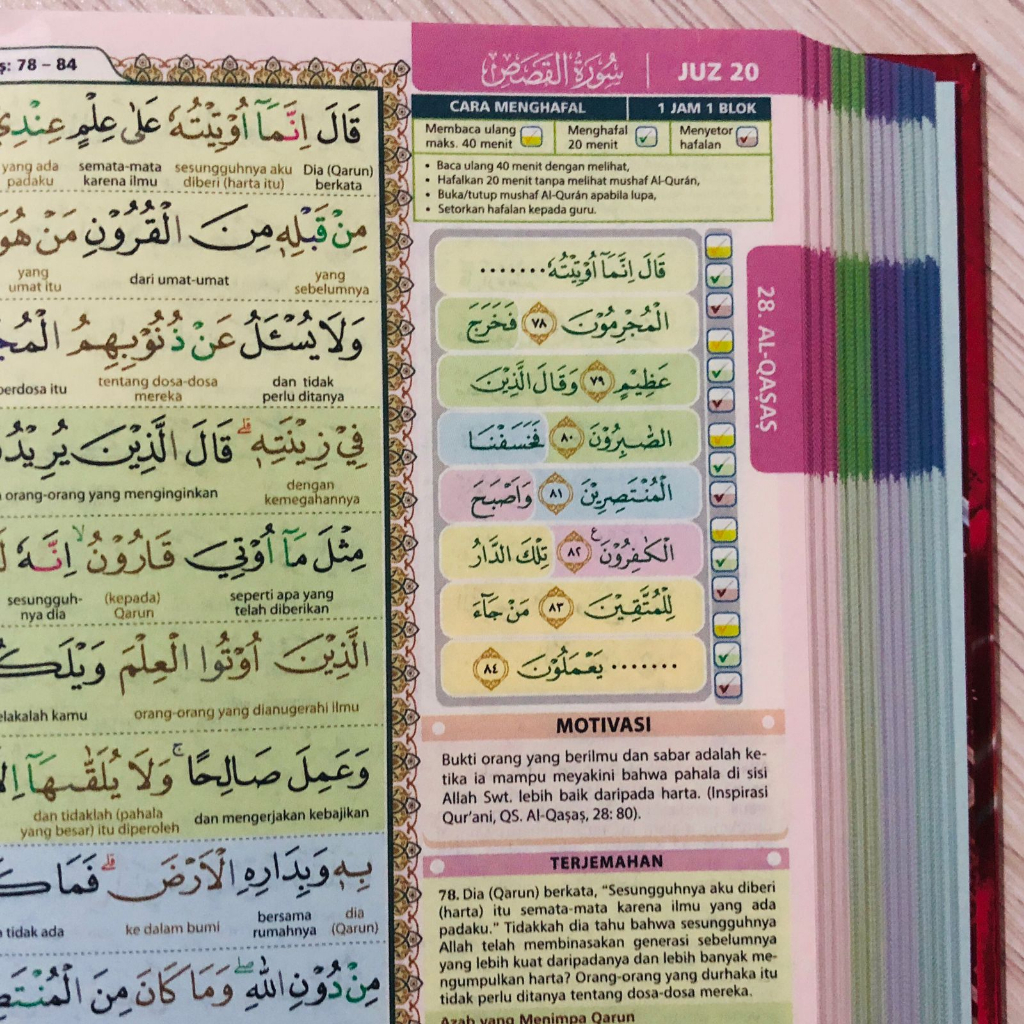 78 – 84
قَالَ اِنَّمَآ اُوْتِيْتُهٗ عَلٰى عِلْمٍ عِنْدِيْ
Dia (Qarun) berkata
sesungguhnya aku diberi (harta itu)
semata-mata karena ilmu
yang ada padaku
مِنْ قَبْلِهٖ مِنَ الْقُرُوْنِ مَنْ هُوَ
yang sebelumnya
dari umat-umat
yang umat itu
وَلَا يُسْـَٔلُ عَنْ ذُنُوْبِهِمُ
dan tidak perlu ditanya
tentang dosa-dosa mereka
itu
فِيْ زِيْنَتِهٖ ۗ قَالَ الَّذِيْنَ
dengan kemegahannya
orang-orang yang menginginkan
مِثْلَ مَآ اُوْتِيَ قَارُوْنُ ۙ اِنَّهٗ
seperti apa yang telah diberikan
(kepada) Qarun
sesungguh-nya dia
الَّذِيْنَ اُوْتُوا الْعِلْمَ
orang-orang yang dianugerahi ilmu
kamu
وَعَمِلَ صَالِحًا ۚ وَلَا يُلَقّٰىهَآ
dan mengerjakan kebajikan
dan tidaklah (pahala yang besar) itu diperoleh
بِهٖ وَبِدَارِهِ الْاَرْضَ ۗ فَمَا
dia (Qarun)
bersama rumahnya
ke dalam bumi
tidak ada
مِنْ دُوْنِ اللّٰهِ ۖ وَمَا كَانَ مِنَ
سُوْرَةُ الْقَصَصِ | JUZ 20
CARA MENGHAFAL | 1 JAM 1 BLOK
Membaca ulang maks. 40 menit
Menghafal 20 menit
Menyetor hafalan
• Baca ulang 40 menit dengan melihat,
• Hafalkan 20 menit tanpa melihat mushaf Al-Qurán,
• Buka/tutup mushaf Al-Qurán apabila lupa,
• Setorkan hafalan kepada guru.
قَالَ اِنَّمَآ اُوْتِيْتُهٗ.......
الْمُجْرِمُوْنَ ٧٨ فَخَرَجَ
عَظِيْمٍ ٧٩ وَقَالَ الَّذِيْنَ
الصّٰبِرُوْنَ ٨٠ فَخَسَفْنَا
الْمُنْتَصِرِيْنَ ٨١ وَاَصْبَحَ
الْكٰفِرُوْنَ ࣖ ٨٢ تِلْكَ الدَّارُ
لِلْمُتَّقِيْنَ ٨٣ مَنْ جَآءَ
....... يَعْمَلُوْنَ ٨٤
28. AL-QAṢAṢ
MOTIVASI
Bukti orang yang berilmu dan sabar adalah ke-
tika ia mampu meyakini bahwa pahala di sisi
Allah Swt. lebih baik daripada harta. (Inspirasi
Qur'ani, QS. Al-Qaṣaṣ, 28: 80).
TERJEMAHAN
78. Dia (Qarun) berkata, "Sesungguhnya aku diberi
(harta) itu semata-mata karena ilmu yang ada
padaku." Tidakkah dia tahu bahwa sesungguhnya
Allah telah membinasakan generasi sebelumnya
yang lebih kuat daripadanya dan lebih banyak me-
ngumpulkan harta? Orang-orang yang durhaka itu
tidak perlu ditanya tentang dosa-dosa mereka.
Azab yang Menimpa Qarun